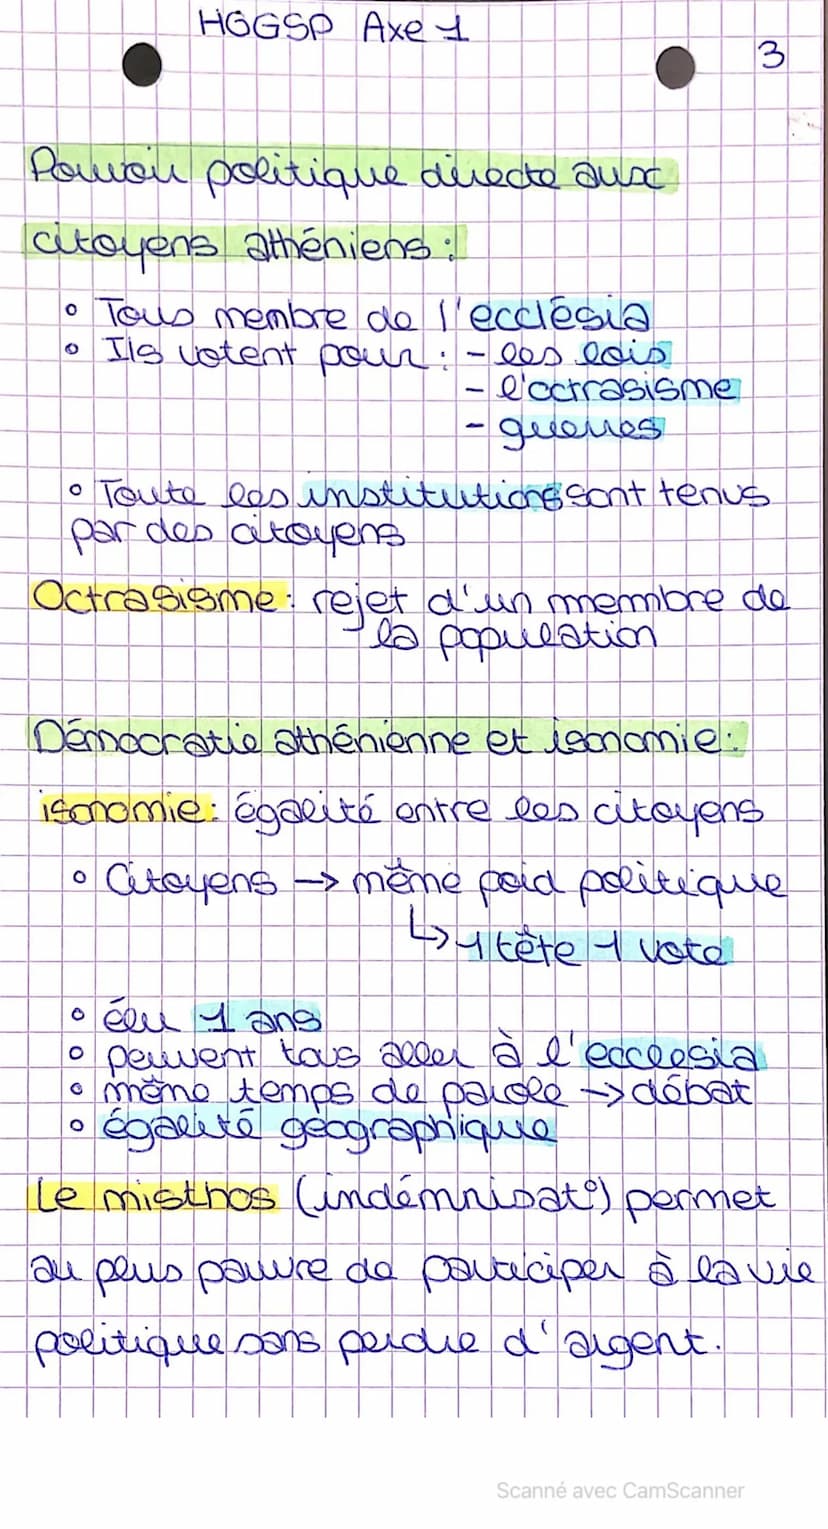 HGGSP Axe 1
3
Pouvoir politique directe aux
citoyens athéniens :
◦ Tous membre de l'ecclésia
◦ Ils votent pour : - les lois
- l'octrasisme
- guerres
◦ Toute les institutions sont tenus
par des citoyens
Octrasisme : rejet d'un membre de
la population
Démocratie athénienne et isonomie :
isonomie : égalité entre les citoyens
◦ Citoyens → même poid politique
↳ 1 tête 1 vote
◦ élu 1 ans
◦ peuvent tous aller à l'ecclesia
◦ même temps de parole → débat
◦ égalité géographique
Le misthos (indémnisat°) permet
au plus pauvre de participer à la vie
politique sans perdre d'argent.
Scanné avec CamScanner